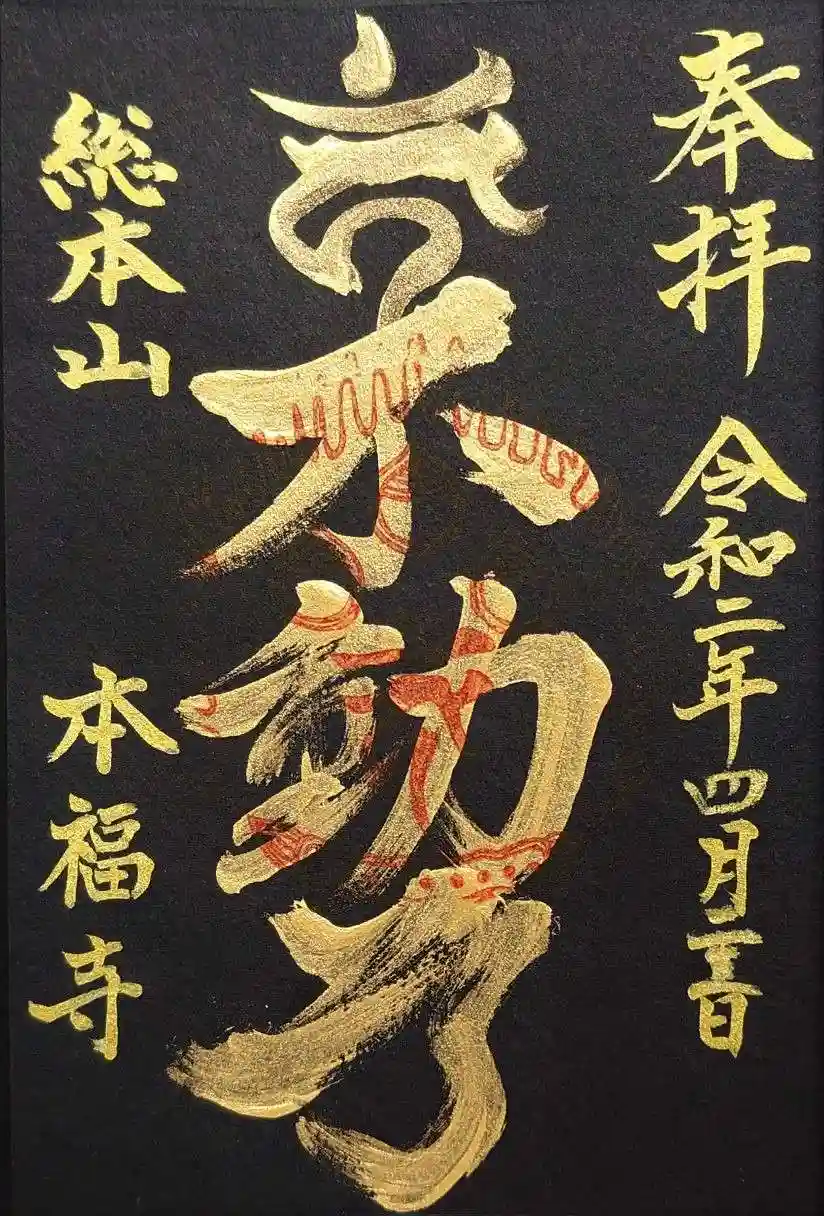 奉拝 令和二年四月日
不動
総本山 本福寺